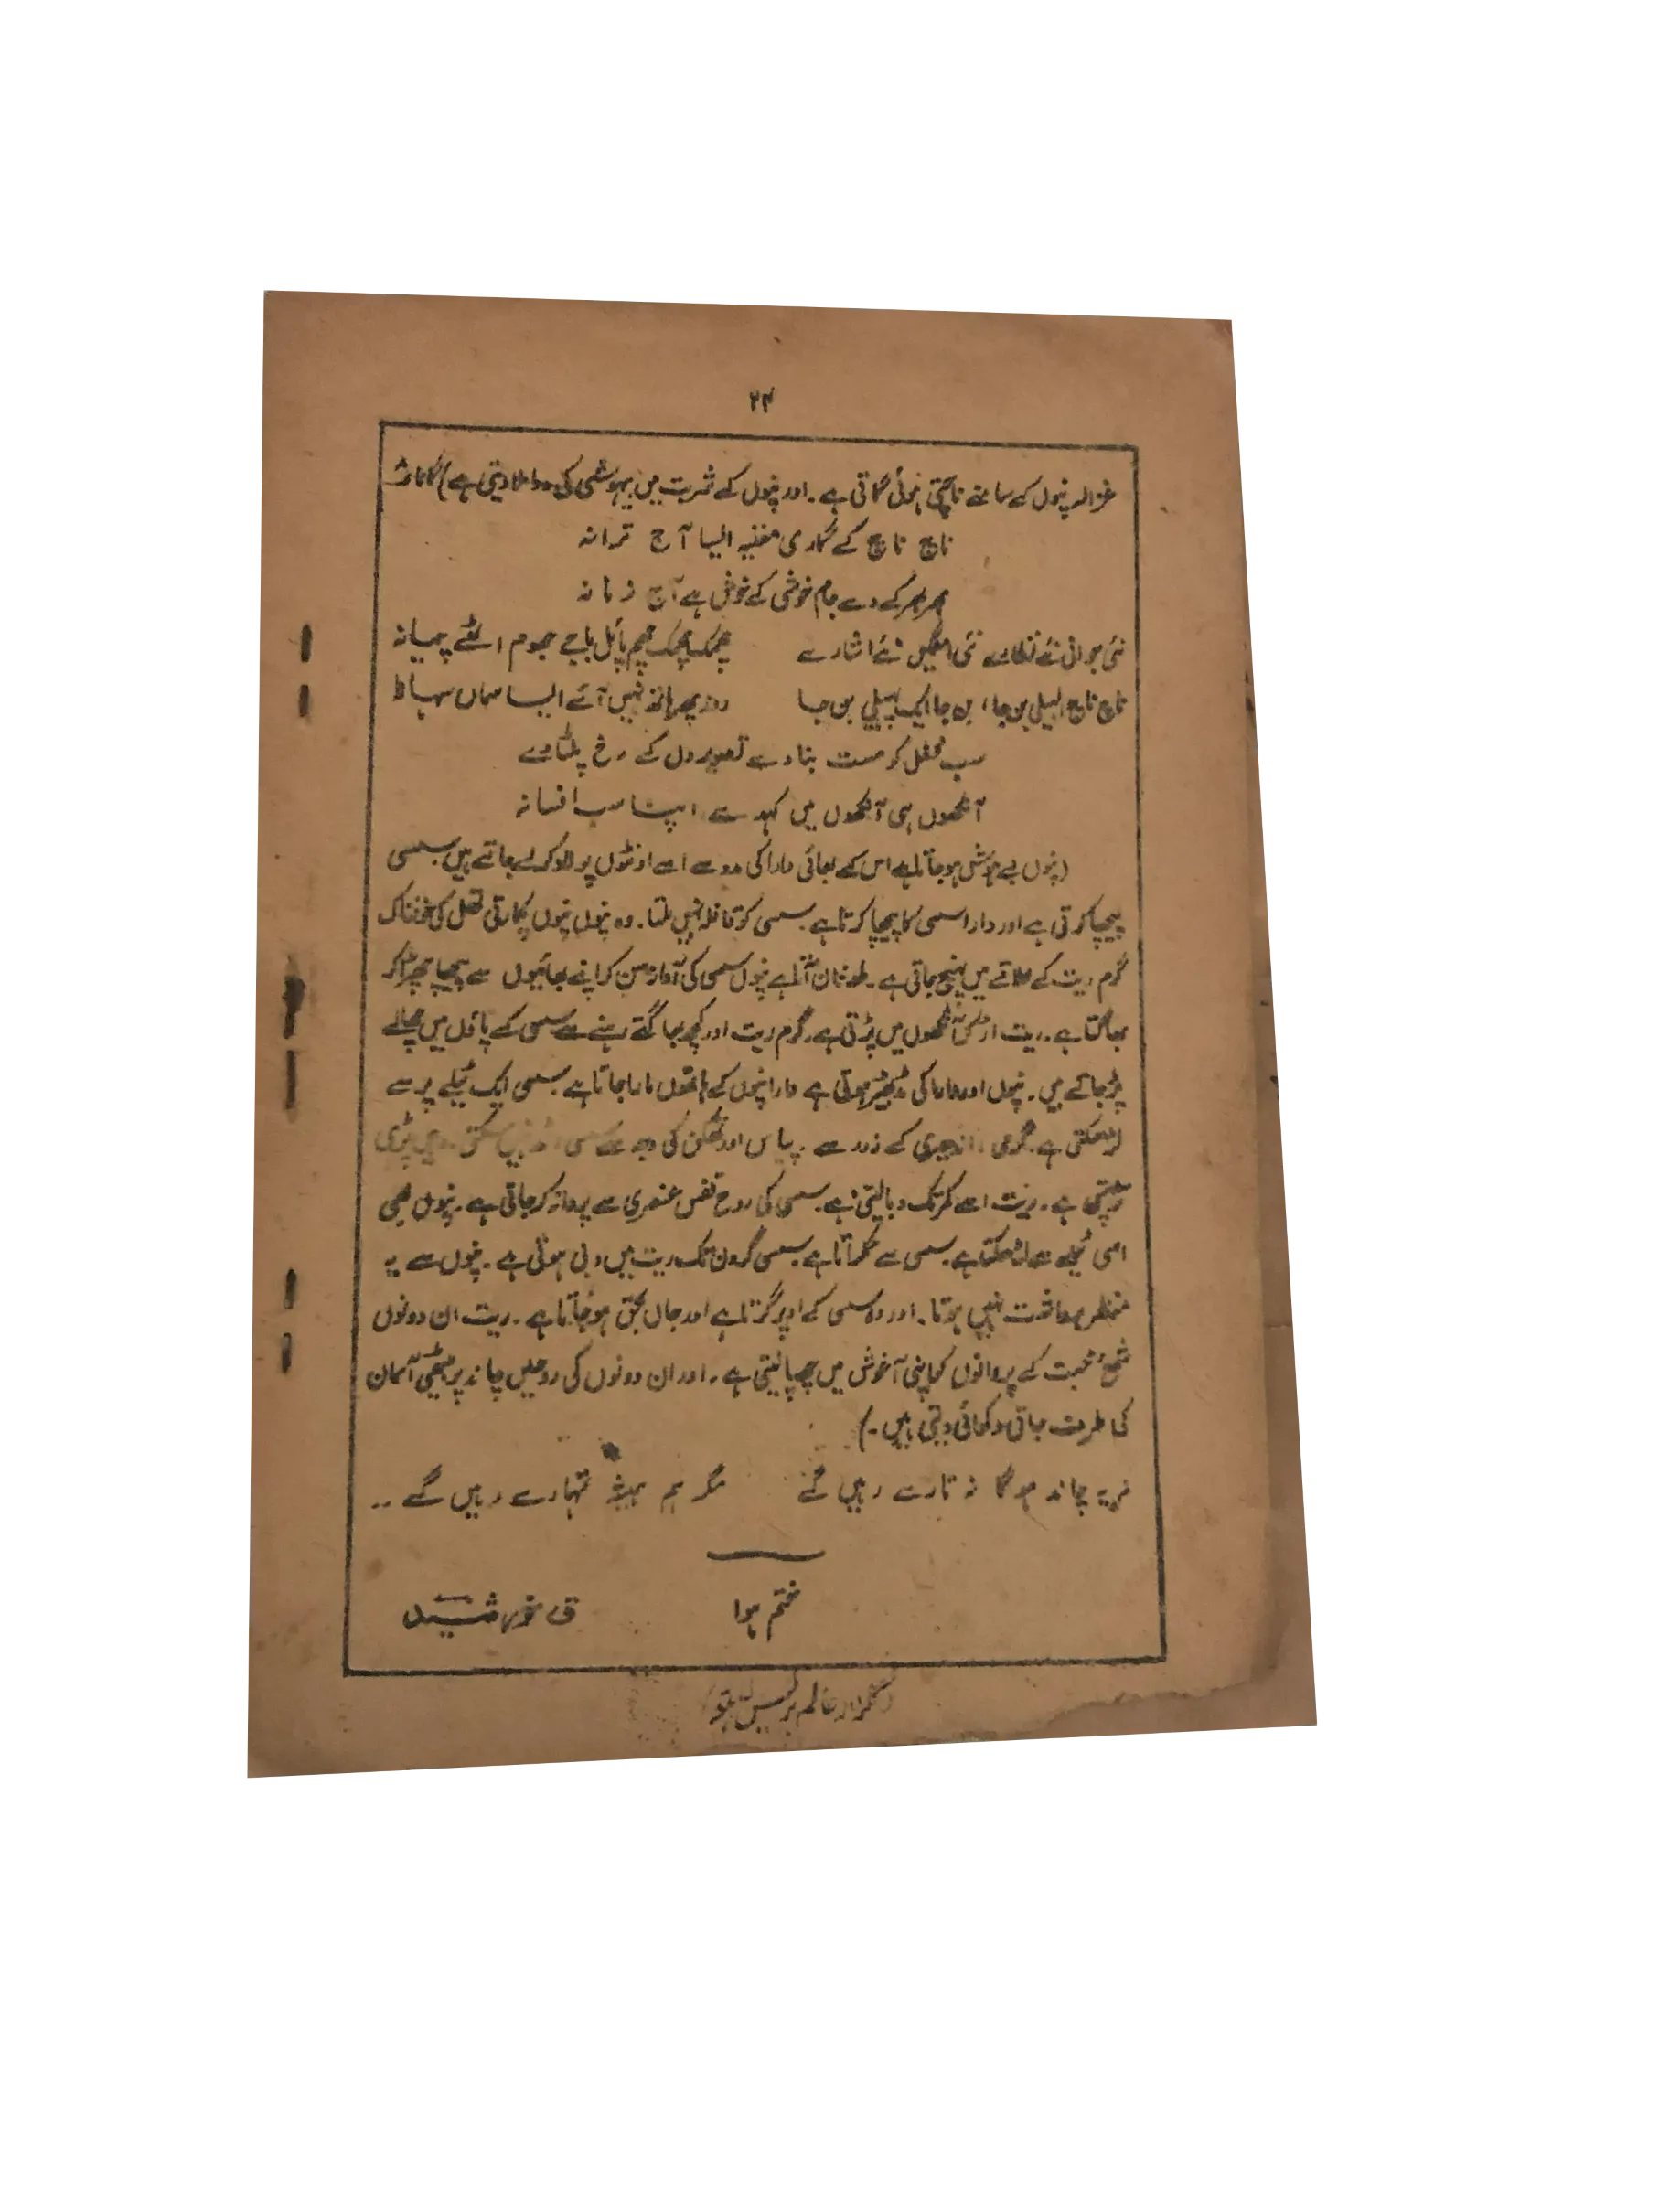 ۲۴
غزالہ پنوں کے سامنے ناچتی ہوئی گاتی ہے۔ اور پنوں کے شربت میں بیہوشی کی دوا ملا دیتی ہے)
ناچ ناچ کے گاری مغنیہ ایسا آج ترانہ
بھر بھر کے دے جام خوشی کے خوش ہے آج زمانہ
نئی جوانی نئے نظارے نئی امنگیں نئے اشارے چھمک چھمک چھم پائل باجے جھوم اٹھے پیمانہ
ناچ ناچ البیلی بن جا، بن جا ایک پہیلی بن جا روز پھر ہاتھ نہیں آئے ایسا سماں سہانا
سب محفل کو مست بنا دے تصویر دل کے رخ پلٹا دے
آنکھوں ہی آنکھوں میں کہہ دے اپنا سب افسانہ
(پنوں بے ہوش ہو جاتا ہے اس کے بھائی دارا کی مدد سے اسے اونٹوں پر لاد کر لے جاتے ہیں۔ سسی
پیچھا کرتی ہے اور دارا سسی کا پیچھا کرتا ہے۔ سسی کو قافلہ نہیں ملتا۔ وہ پنوں پنوں پکارتی تھل کی خوفناک
گرم ریت کے علاقے میں پہنچ جاتی ہے۔ طوفان آتا ہے پنوں سسی کی آواز سن کر اپنے بھائیوں سے پیچھا چھڑا کر
بھاگتا ہے۔ ریت اڑ کر آنکھوں میں پڑتی ہے۔ گرم ریت اور کچھ بھاگتے رہنے سے سسی کے پاؤں میں چھالے
پڑ جاتے ہیں۔ پنوں اور دارا کی مڈبھیڑ ہوتی ہے دارا پنوں کے ہاتھوں مارا جاتا ہے۔ سسی ایک ٹیلے پر سے
لڑھکتی ہے۔ گرمی آندھی کے زور سے۔ پیاس اور تھکن کی وجہ سے سسی اٹھ نہیں سکتی۔ وہیں پڑی
تڑپتی ہے۔ ریت اسے کمر تک دبا لیتی ہے۔ سسی کی روح قفس عنصری سے پرواز کر جاتی ہے۔ پنوں بھی
اسی ٹیلے سے لڑھکتا ہے۔ سسی سے ٹکراتا ہے۔ سسی گردن تک ریت میں دبی ہوتی ہے۔ پنوں سے یہ
منظر برداشت نہیں ہوتا۔ اور وہ سسی کے اوپر گرتا ہے اور جاں بحق ہو جاتا ہے۔ ریت ان دونوں
شمع محبت کے پروانوں کو اپنی آغوش میں چھپا لیتی ہے۔ اور ان دونوں کی روحیں چاند پر بیٹھی آسمان
کی طرف جاتی دکھائی دیتی ہیں۔)
نہ یہ چاند ہو گا نہ تارے رہیں گے مگر ہم ہمیشہ تمہارے رہیں گے ..
ختم ہوا
ق خورشید
(گلزار عالم پریس